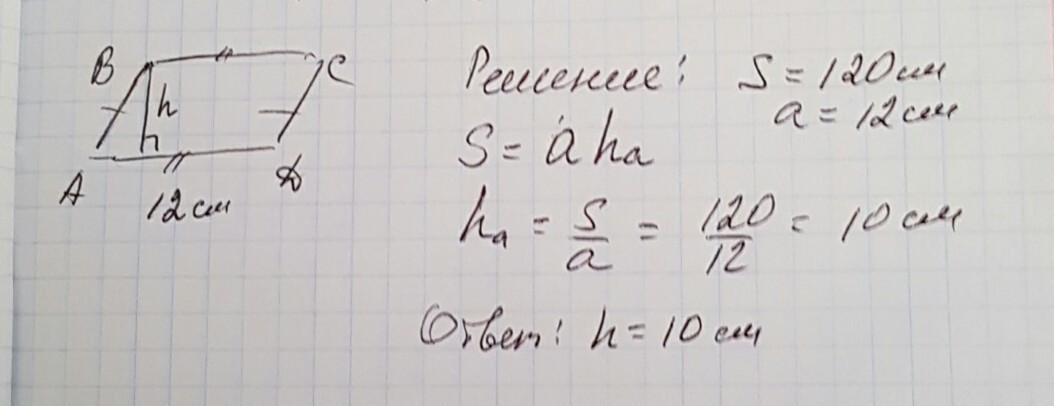 B
C
h
A
D
12 см
Решение: S = 120 см
a = 12 см
S = a hₐ
hₐ = S/a = 120/12 = 10 см
Ответ: h = 10 см